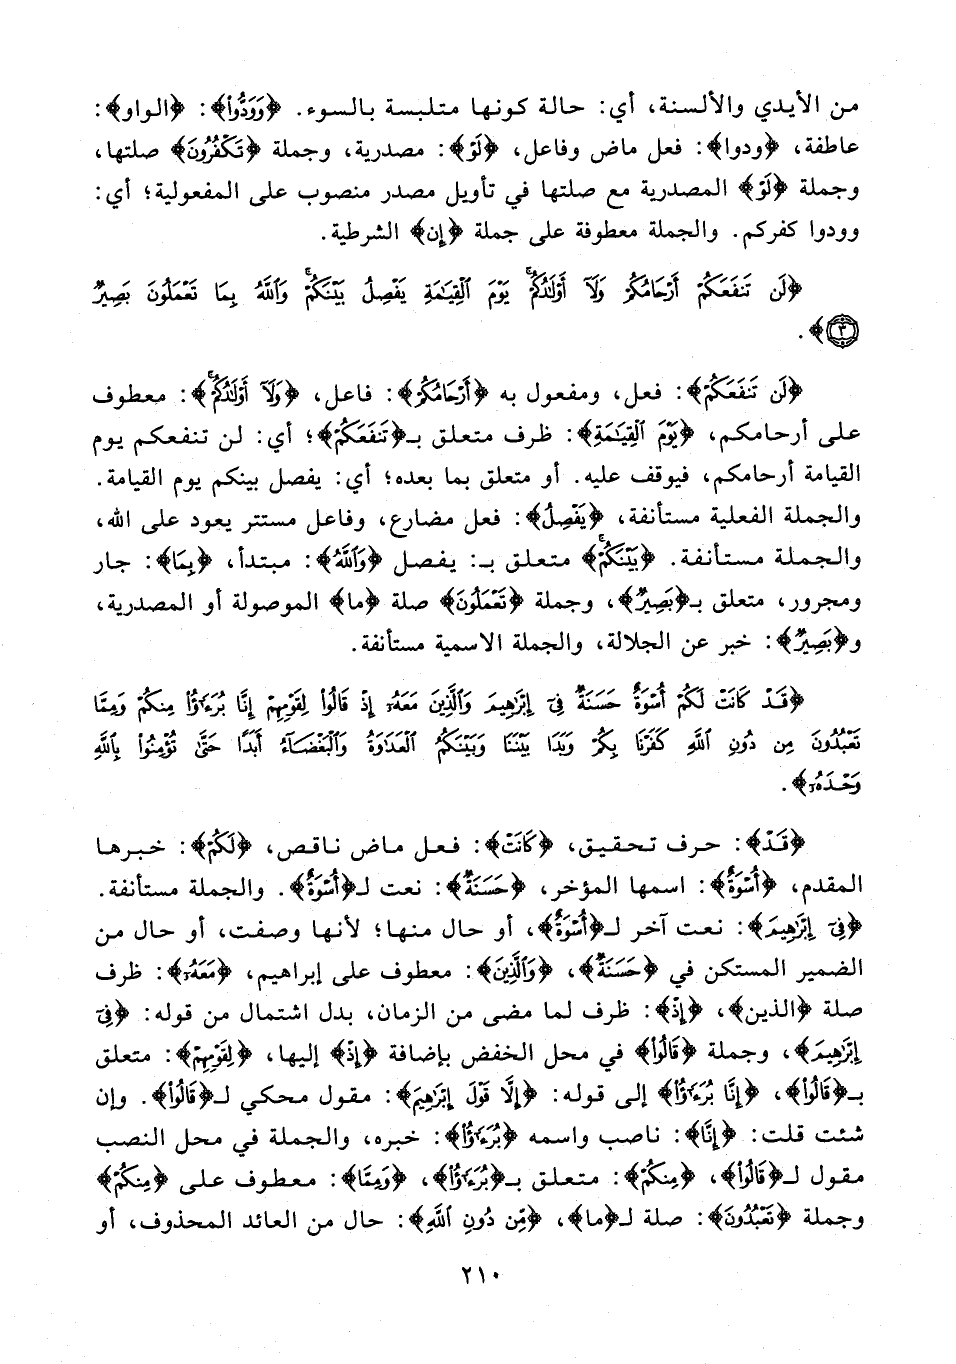 من الأيدي والألسنة، أي: حالة كونها متلبسة بالسوء. ﴿وَوَدُّوا﴾: ﴿الواو﴾:
عاطفة، ﴿ودوا﴾: فعل ماض وفاعل، ﴿لَوْ﴾: مصدرية، وجملة ﴿تَكْفُرُونَ﴾ صلتها،
وجملة ﴿لَوْ﴾ المصدرية مع صلتها في تأويل مصدر منصوب على المفعولية؛ أي:
وودوا كفركم. والجملة معطوفة على جملة ﴿إن﴾ الشرطية.
﴿لَن تَنفَعَكُمْ أَرْحَامُكُمْ وَلَآ أَوْلَٰدُكُمْ ۚ يَوْمَ ٱلْقِيَٰمَةِ يَفْصِلُ بَيْنَكُمْ ۚ وَٱللَّهُ بِمَا تَعْمَلُونَ بَصِيرٌ
٣﴾.
﴿لَن تَنفَعَكُمْ﴾: فعل، ومفعول به ﴿أَرْحَامُكُمْ﴾: فاعل، ﴿وَلَآ أَوْلَٰدُكُمْ ۚ﴾: معطوف
على أرحامكم، ﴿يَوْمَ ٱلْقِيَٰمَةِ﴾: ظرف متعلق بـ﴿تَنفَعَكُمْ﴾؛ أي: لن تنفعكم يوم
القيامة أرحامكم، فيوقف عليه. أو متعلق بما بعده؛ أي: يفصل بينكم يوم القيامة.
والجملة الفعلية مستأنفة، ﴿يَفْصِلُ﴾: فعل مضارع، وفاعل مستتر يعود على الله،
والجملة مستأنفة. ﴿بَيْنَكُمْ ۚ﴾ متعلق بـ: يفصل ﴿وَٱللَّهُ﴾: مبتدأ، ﴿بِمَا﴾: جار
ومجرور، متعلق بـ﴿بَصِيرٌ﴾، وجملة ﴿تَعْمَلُونَ﴾ صلة ﴿ما﴾ الموصولة أو المصدرية،
و﴿بَصِيرٌ﴾: خبر عن الجلالة، والجملة الاسمية مستأنفة.
﴿قَدْ كَانَتْ لَكُمْ أُسْوَةٌ حَسَنَةٌ فِىٓ إِبْرَٰهِيمَ وَٱلَّذِينَ مَعَهُۥٓ إِذْ قَالُوا۟ لِقَوْمِهِمْ إِنَّا بُرَءَٰٓؤُا۟ مِنكُمْ وَمِمَّا
تَعْبُدُونَ مِن دُونِ ٱللَّهِ كَفَرْنَا بِكُمْ وَبَدَا بَيْنَنَا وَبَيْنَكُمُ ٱلْعَدَٰوَةُ وَٱلْبَغْضَآءُ أَبَدًا حَتَّىٰ تُؤْمِنُوا۟ بِٱللَّهِ
وَحْدَهُۥٓ﴾.
﴿قَدْ﴾: حرف تحقيق، ﴿كَانَتْ﴾: فعل ماض ناقص، ﴿لَكُمْ﴾: خبرها
المقدم، ﴿أُسْوَةٌ﴾: اسمها المؤخر، ﴿حَسَنَةٌ﴾: نعت لـ﴿أُسْوَةٌ﴾. والجملة مستأنفة.
﴿فِىٓ إِبْرَٰهِيمَ﴾: نعت آخر لـ﴿أُسْوَةٌ﴾، أو حال منها؛ لأنها وصفت، أو حال من
الضمير المستكن في ﴿حَسَنَةٌ﴾، ﴿وَٱلَّذِينَ﴾: معطوف على إبراهيم، ﴿مَعَهُۥٓ﴾: ظرف
صلة ﴿الذين﴾، ﴿إِذْ﴾: ظرف لما مضى من الزمان، بدل اشتمال من قوله: ﴿فِىٓ
إِبْرَٰهِيمَ﴾، وجملة ﴿قَالُوا۟﴾ في محل الخفض بإضافة ﴿إِذْ﴾ إليها، ﴿لِقَوْمِهِمْ﴾: متعلق
بـ﴿قَالُوا۟﴾، ﴿إِنَّا بُرَءَٰٓؤُا۟﴾ إلى قوله: ﴿إِلَّا قَوْلَ إِبْرَٰهِيمَ﴾: مقول محكي لـ﴿قَالُوا۟﴾. وإن
شئت قلت: ﴿إِنَّا﴾: ناصب واسمه ﴿بُرَءَٰٓؤُا۟﴾: خبره، والجملة في محل النصب
مقول لـ﴿قَالُوا۟﴾، ﴿مِنكُمْ﴾: متعلق بـ﴿بُرَءَٰٓؤُا۟﴾، ﴿وَمِمَّا﴾: معطوف على ﴿مِنكُمْ﴾
وجملة ﴿تَعْبُدُونَ﴾: صلة لـ﴿ما﴾، ﴿مِن دُونِ ٱللَّهِ﴾: حال من العائد المحذوف، أو
٢١٠